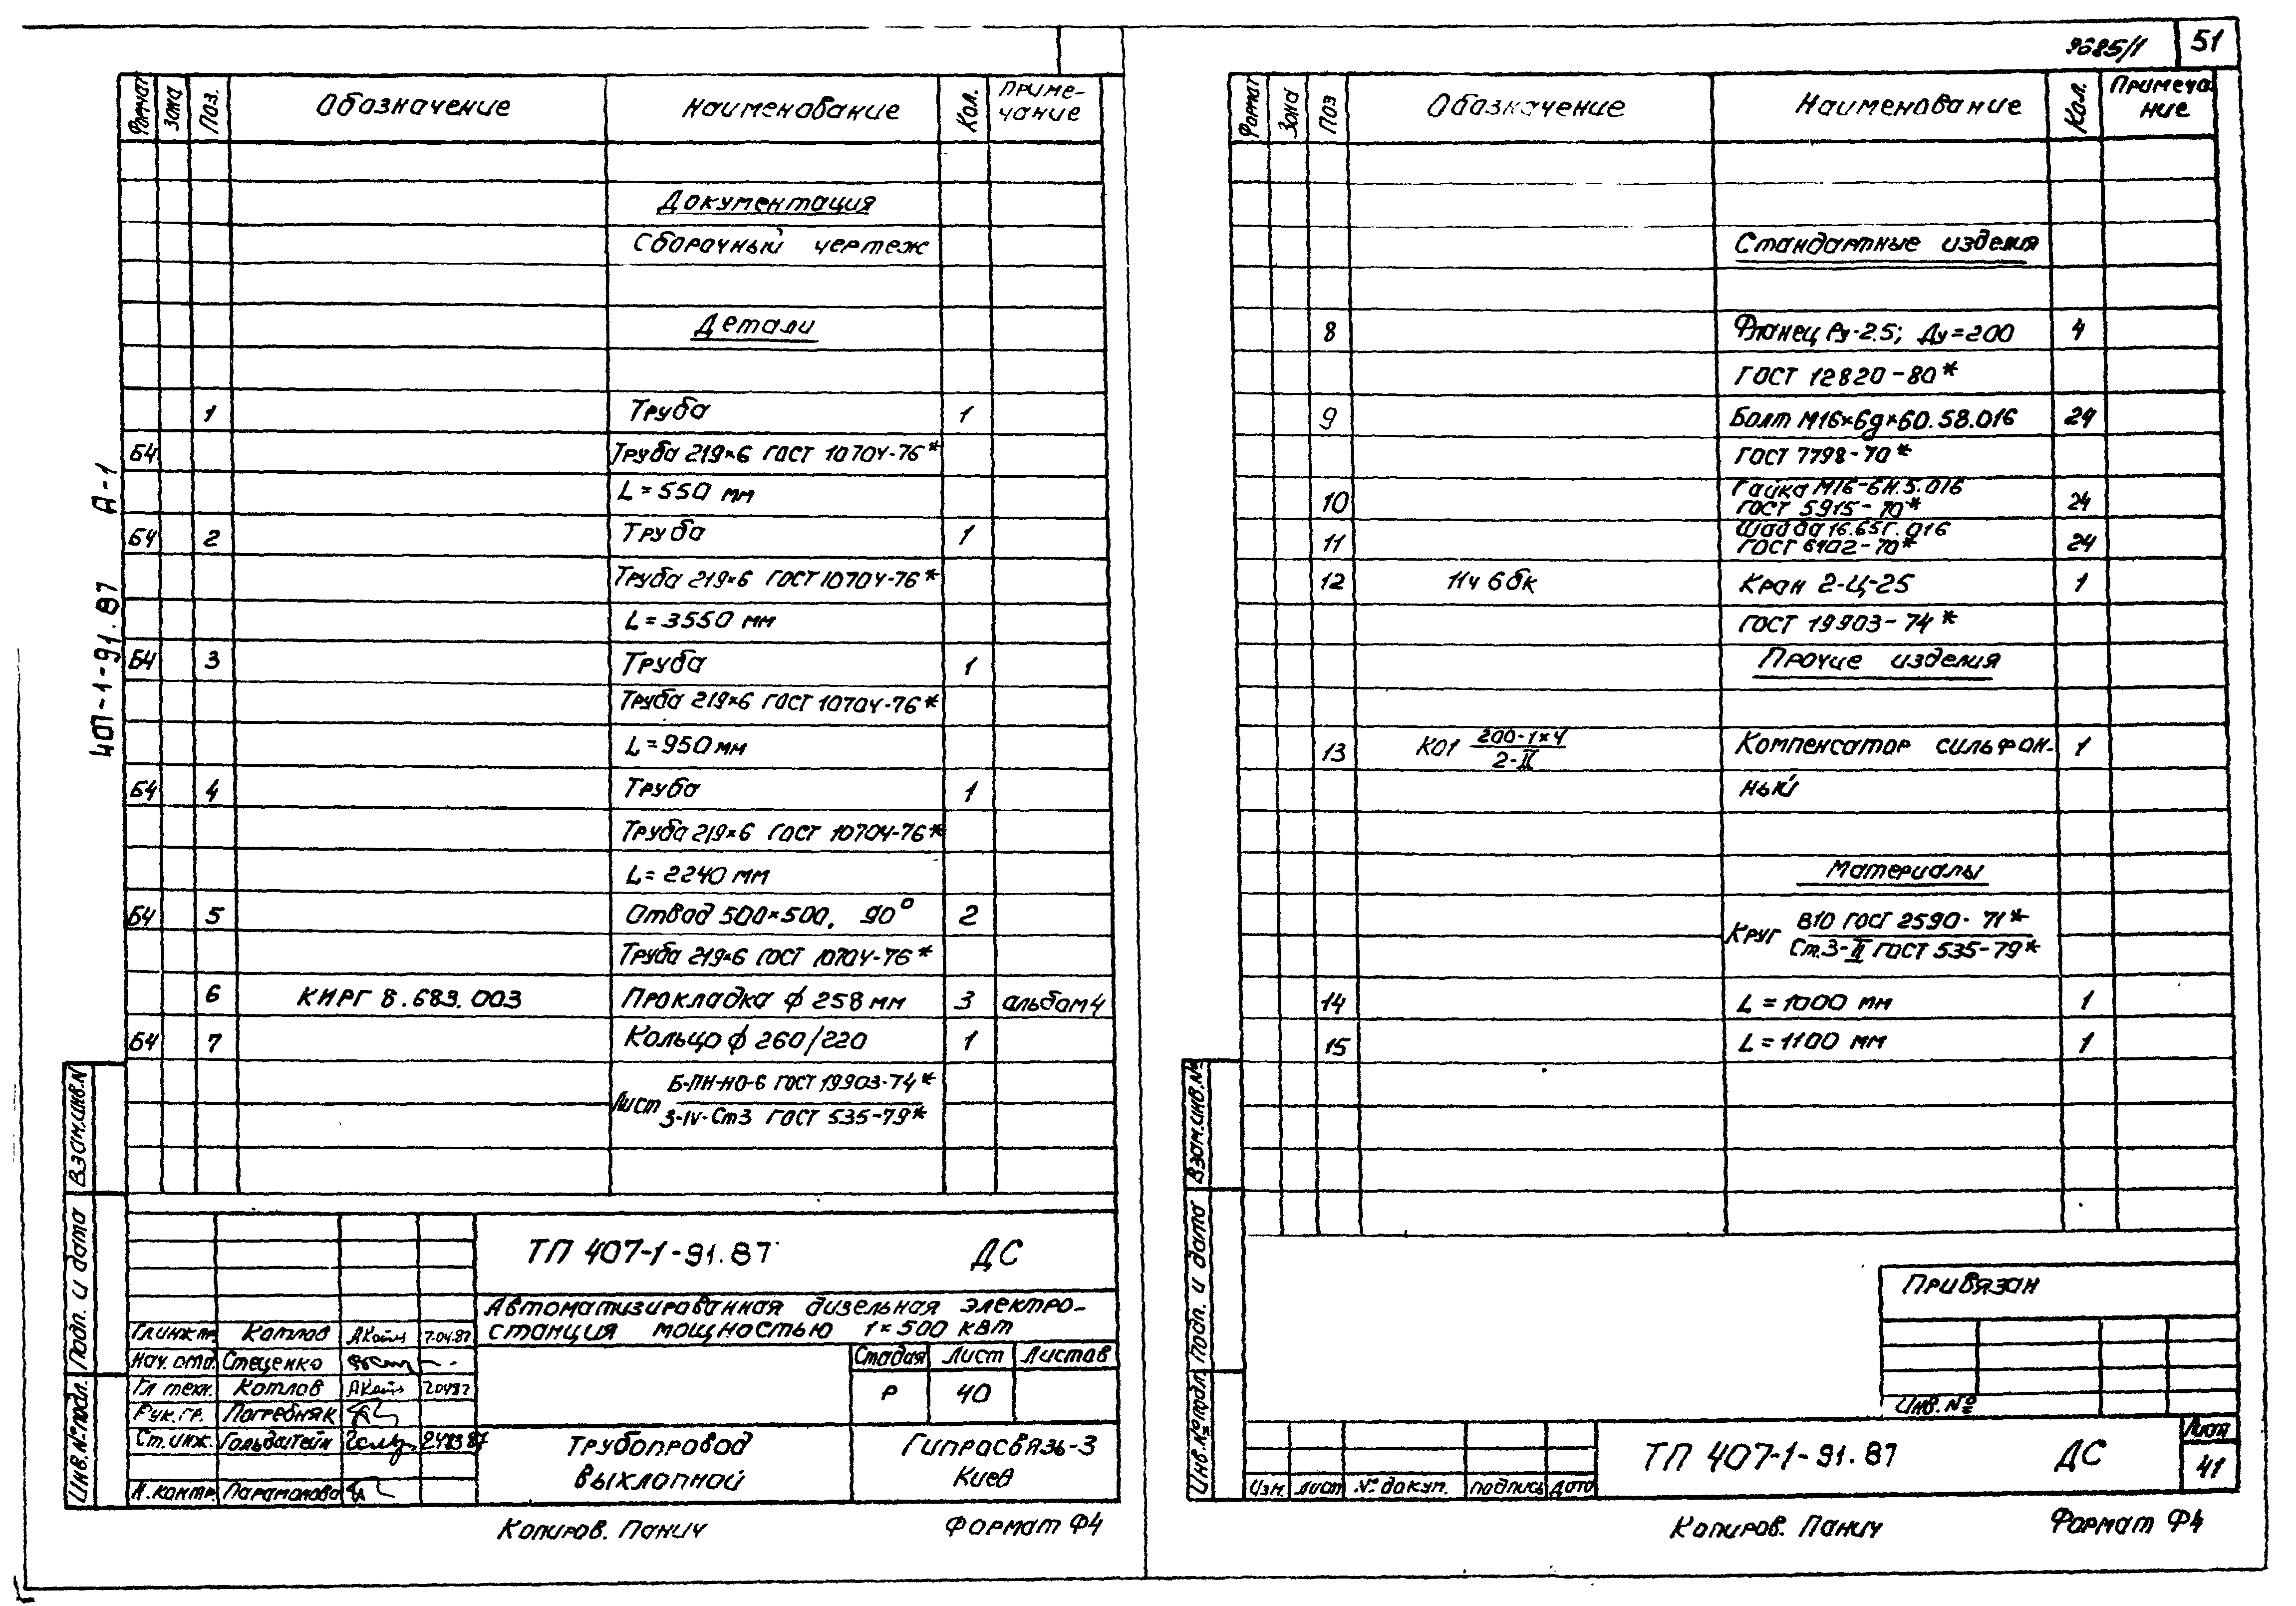 9685/1 51
Формат Зона Поз. Обозначение Наименование Кол. Приме-
чание
Документация
Сборочный чертеж
Детали
1 Труба 1
Б4 Труба 219×6 ГОСТ 10704-76*
L = 550 мм
Б4 2 Труба 1
Труба 219×6 ГОСТ 10704-76*
L = 3550 мм
Б4 3 Труба 1
Труба 219×6 ГОСТ 10704-76*
L = 950 мм
Б4 4 Труба 1
Труба 219×6 ГОСТ 10704-76*
L = 2240 мм
Б4 5 Отвод 500×500, 90° 2
Труба 219×6 ГОСТ 10704-76*
6 КИРГ 8.683.003 Прокладка ф 258 мм 3 альбом 4
Б4 7 Кольцо ф 260/220 1
Лист Б-ПН-НО-6 ГОСТ 19903-74*
3-IV-Ст3 ГОСТ 535-79*
407-1-91.87 А-1
Взам.инв.N
Подп. и дата
Инв.№подл.
ТП 407-1-91.87 ДС
Автоматизированная дизельная электро-
станция мощностью 1×500 квт
Гл.инж.пр. Котлов 7.04.87
Нач. отд. Стеценко
Гл техн. Котлов 7.04.87
Рук.гр. Погребняк
Ст.инж. Гольдштейн
Н.контр. Парамонова
Стадия Лист Листов
Р 40
Трубопровод
выхлопной
Гипросвязь-3
Киев
Копиров. Панич Формат Ф4
Формат Зона Поз Обозначение Наименование Кол. Примеча
ние
Стандартные изделия
8 Фланец Ру-2.5; Ду=200 4
ГОСТ 12820-80*
9 Болт М16×6g×60.58.016 24
ГОСТ 7798-70*
Гайка М16-6Н.5.016
10 ГОСТ 5915-70* 24
Шайба 16.65Г.016
11 ГОСТ 6402-70* 24
12 11ч 6бк Кран 2-Ц-25 1
ГОСТ 19903-74*
Прочие изделия
13 КО1 200-1×4
2-II Компенсатор сильфон- 1
ный
Материалы
Круг В10 ГОСТ 2590-71*
Ст.3-II ГОСТ 535-79*
14 L = 1000 мм 1
15 L = 1100 мм 1
Взам.инв.№
Подп. и дата
Инв.№подл.
Привязан
Инв.№
Изм. Лист № докум. Подпись Дата
ТП 407-1-91.87 ДС
Лист
41
Копиров. Панич Формат Ф4